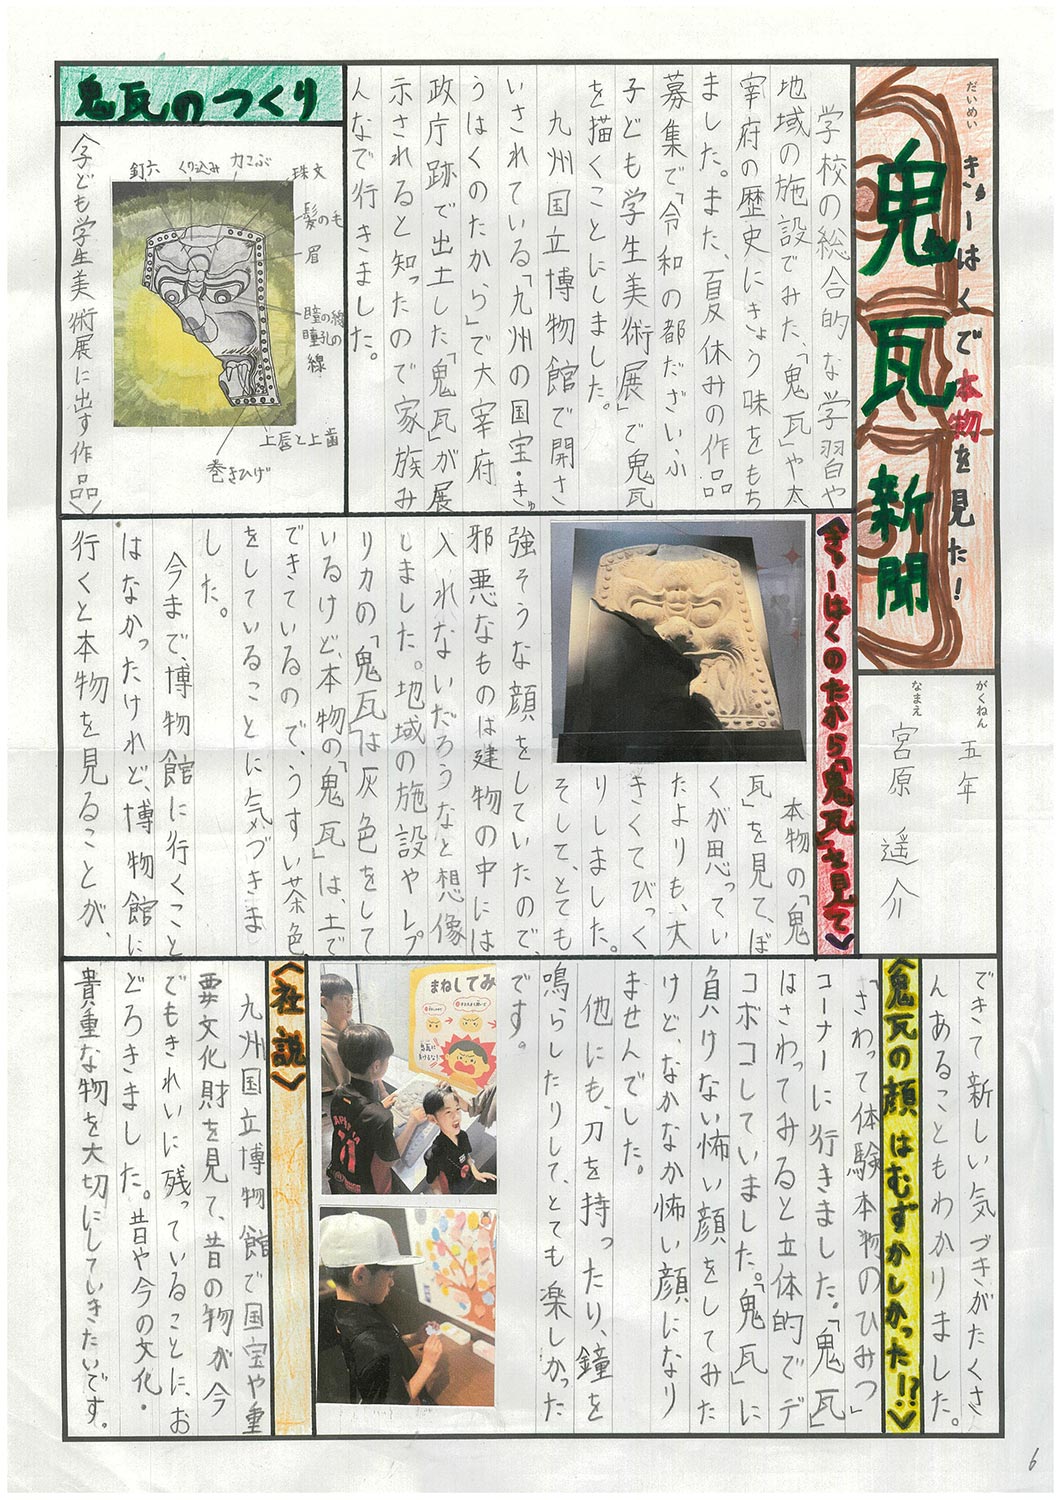 だいめい
きゅーはくで本物を見た!
鬼瓦新聞
がくねん
五年
なまえ
宮原 遥介
学校の総合的な学習や
地域の施設でみた、「鬼瓦」や太
宰府の歴史にきょう味をもち
ました。また、夏休みの作品
募集で「令和の都だざいふ
子ども学生美術展」で鬼瓦
を描くことにしました。
九州国立博物館で開さ
いされている「九州の国宝・きゅ
うはくのたから」で大宰府
政庁跡で出土した「鬼瓦」が展
示されると知ったので家族み
んなで行きました。
鬼瓦のつくり
釘穴
くり込み
力こぶ
珠文
髪の毛
眉
瞳の線
瞳孔の
線
上唇と上歯
巻きひげ
子ども学生美術展に出す作品
きゅーはくのたから「鬼瓦」を見て
本物の「鬼
瓦」を見て、ぼ
くが思ってい
たよりも、大
きくてびっく
りしました。
そして、とても
強そうな顔をしていたので、
邪悪なものは建物の中には
入れないだろうなと想像
しました。地域の施設やレプ
リカの「鬼瓦」は灰色をして
いるけど、本物の「鬼瓦」は、土で
できているので、うすい茶色
をしていることに気づきま
した。
今まで、博物館に行くこと
はなかったけれど、博物館に
行くと本物を見ることが、
できて新しい気づきがたくさ
んあることもわかりました。
鬼瓦の顔はむずかしかった!?
「さわって体験本物のひみつ」
コーナーに行きました。「鬼瓦」
はさわってみると立体的でデ
コボコしていました。「鬼瓦」に
負けない怖い顔をしてみた
けど、なかなか怖い顔になり
ませんでした。
他にも、刀を持ったり、鐘を
鳴らしたりして、とても楽しかった
です。
まねしてみ
社説
九州国立博物館で国宝や重
要文化財を見て、昔の物が今
でもきれいに残っていることに、お
どろきました。昔や今の文化・
貴重な物を大切にしていきたいです。
6